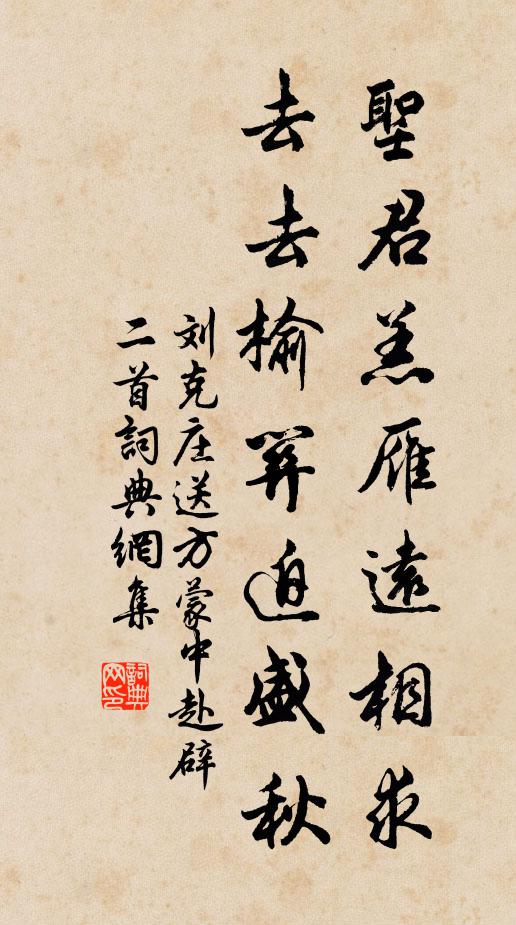 聖君羔雁遠相求
去去榆關迫盛秋
刘克庄送方蒙中赴辟
二首詞典網集
詞典
网印